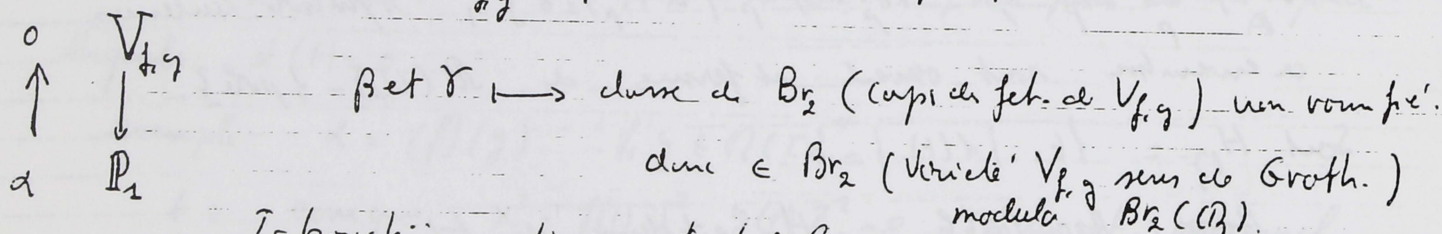 0 V_{f,g}
β et γ ⟼ classe de Br₂ (corps des fct. de V_{f,g}) non ramifié.
α ℙ₁
donc ∈ Br₂ (Variété V_{f,g} sens de Groth.)
modulo Br₂(ℚ).